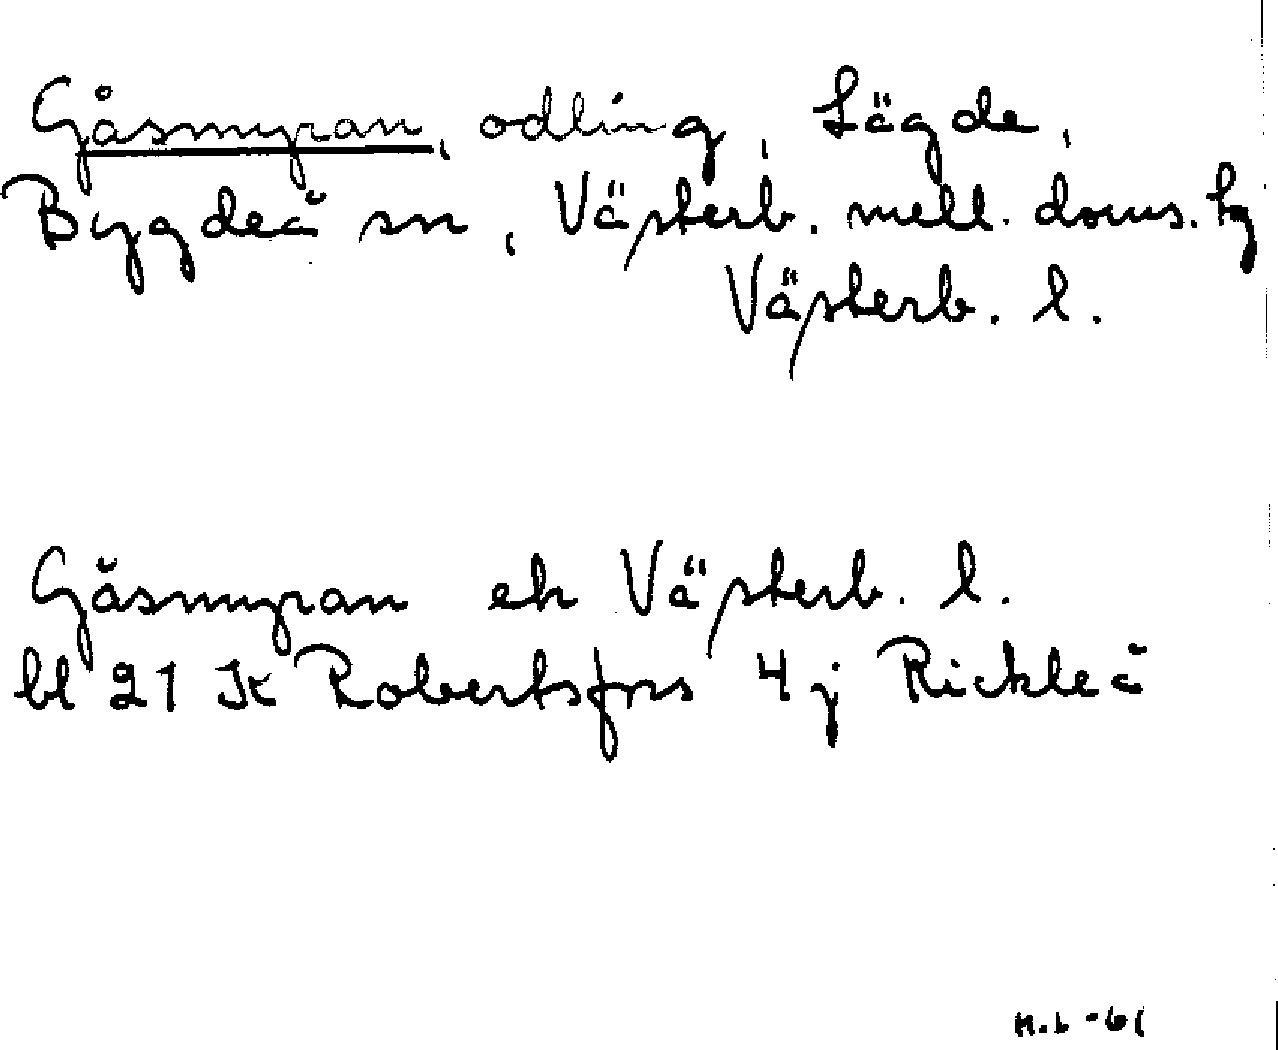 Gåsmyran, odling, Lägde,
Bygdeå sn, Västerb. mell. doms. hg
Västerb. l.
Gåsmyran ek Västerb. l.
bl 21 K Robertsfors 4 j Rickleå
M.L -61